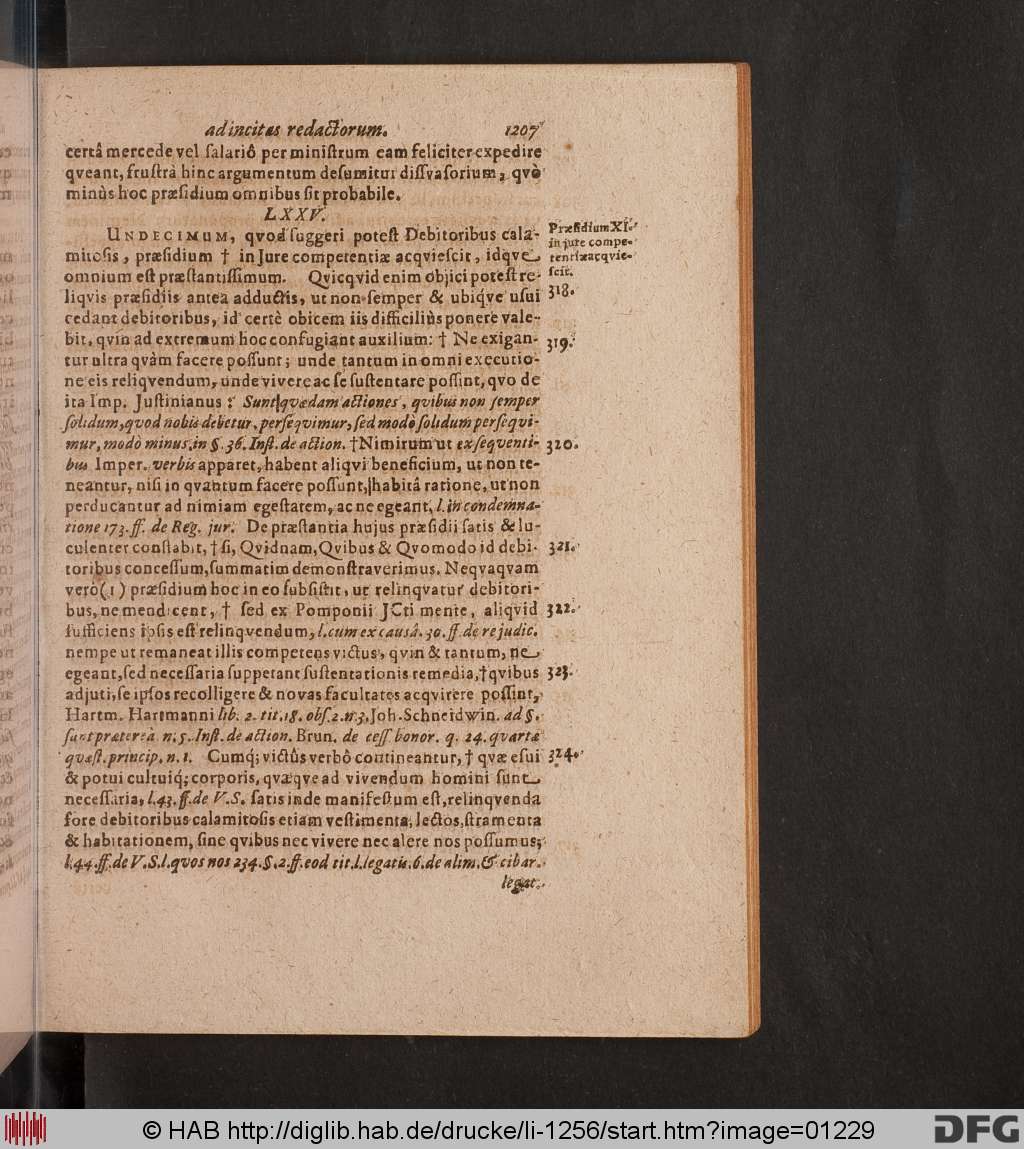 ad incitas redactorum. 1207
certâ mercede vel salariô per ministrum eam feliciter expedire
qveant, frustrà hinc argumentum desumitur dissvasorium, qvò
minùs hoc præsidium omnibus sit probabile.
LXXV.
UNDECIMUM, qvod suggeri potest Debitoribus cala-
mitosis, præsidium † in Jure competentiæ acqviescit, idqve
omnium est præstantissimum. Qvicqvid enim objici potest re-
liqvis præsidiis antea adductis, ut non semper & ubiq́ve usui
cedant debitoribus, id certè obicem iis difficiliùs ponere vale-
bit, qvin ad extremum hoc confugiant auxilium: † Ne exigan-
tur ultra qvàm facere possunt; unde tantum in omni executio-
ne eis reliqvendum, unde vivere ac se sustentare possint, qvo de
ita Imp. Justinianus: Sunt quædam actiones, quibus non semper
solidum, quod nobis debetur, persequimur, sed modò solidum persequi-
mur, modò minus, in §. 36. Inst. de action. † Nimirum ut exseqventi-
bus Imper. verbis apparet, habent aliqvi beneficium, ut non te-
neantur, nisi in qvantum facere possunt, habitâ ratione, ut non
perducantur ad nimiam egestatem, ac ne egeant, l. in condemna-
tione 173. ff. de Reg. jur. De præstantia hujus præsidii satis & lu-
culenter constabit, † si, Qvidnam, Qvibus & Qvomodo id debi-
toribus concessum, summatim demonstraverimus. Neqvaqvam
verò (1) præsidium hoc in eo subsistit, ut relinqvatur debitori-
bus, ne mendicent, † sed ex Pomponii JCti mente, aliqvid
sufficiens ipsis est relinqvendum, l. cum ex causâ. 30. ff. de re judic.
nempe ut remaneat illis competens victus, qvin & tantum, ne
egeant, sed necessaria suppetant sustentationis remedia, † qvibus
adjuti, se ipsos recolligere & novas facultates acqvirere possint,
Hartm. Hartmanni lib. 2. tit. 18. obs. 2. n. 3. Joh. Schneidwin. ad §.
sunt præterea n. 5. Inst. de action. Brun. de cess. bonor. q. 24. quartæ
quæst. princip. n. 1. Cumq; victûs verbô contineantur, † qvæ esui
& potui cultuiq; corporis, qvæqve ad vivendum homini sunt
necessaria, l. 43. ff. de V. S. satis inde manifestum est, relinqvenda
fore debitoribus calamitosis etiam vestimenta, lectos, stramenta
& habitationem, sine qvibus nec vivere nec alere nos possumus;
l. 44. ff. de V. S. l. quos nos 234. §. 2. ff. eod tit. l. legatis. 6. de alim. & cibar.
legat.
Præsidium XI.
in jure compe-
tentiæ acqvie-
scit.
318.
319.
320.
321.
322.
323.
324.
© HAB http://diglib.hab.de/drucke/li-1256/start.htm?image=01229
DFG